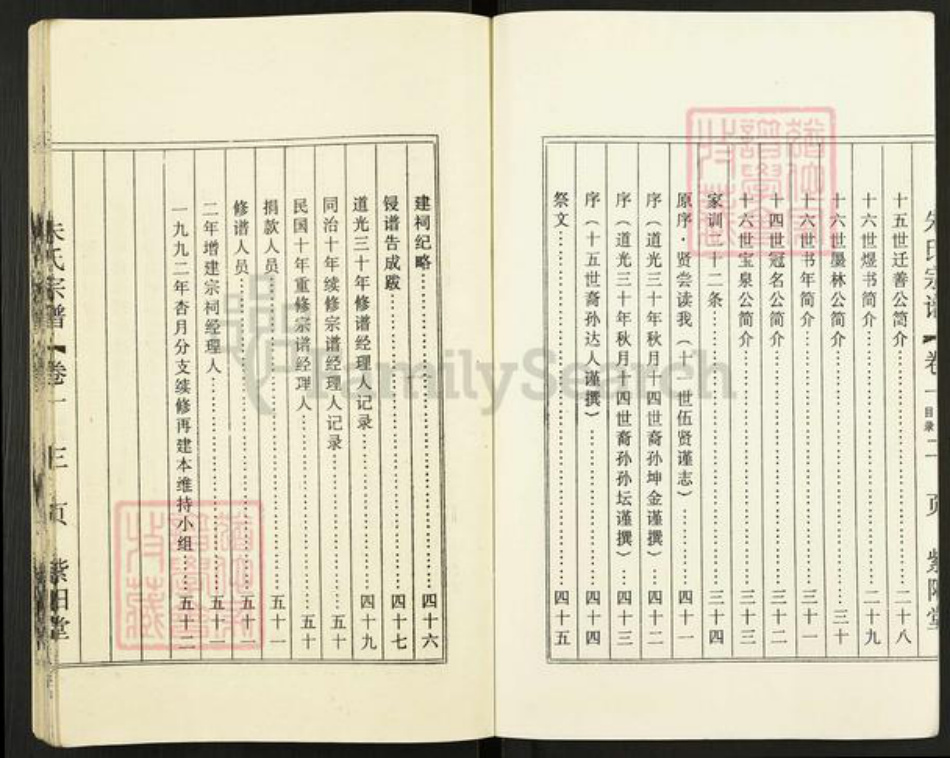 朱氏宗谱【卷一 目录 二页 紫阳堂
十五世迁善公简介……二十八
十六世煜书简介……二十九
十六世墨林公简介……三十
十六世书年简介……三十一
十四世冠名公简介……三十二
十六世宝泉公简介……三十三
家训二十二条……三十四
原序·贤尝读我（十一世伍贤谨志）……四十一
序（道光三十年秋月十四世裔孙坤金谨撰）……四十二
序（道光三十年秋月十四世裔孙孙坛谨撰）……四十三
序（十五世裔孙达人谨撰）……四十四
祭文……四十五
建祠纪略……四十六
锓谱告成跋……四十七
道光三十年修谱经理人记录……四十九
同治十年续修宗谱经理人记录……五十
民国十年重修宗谱经理人……五十
捐款人员……五十一
修谱人员……五十一
二年增建宗祠经理人……五十一
一九九二年杏月分支续修再建本维持小组……五十二
朱氏宗谱【卷一 三页 紫阳堂
FamilySearch